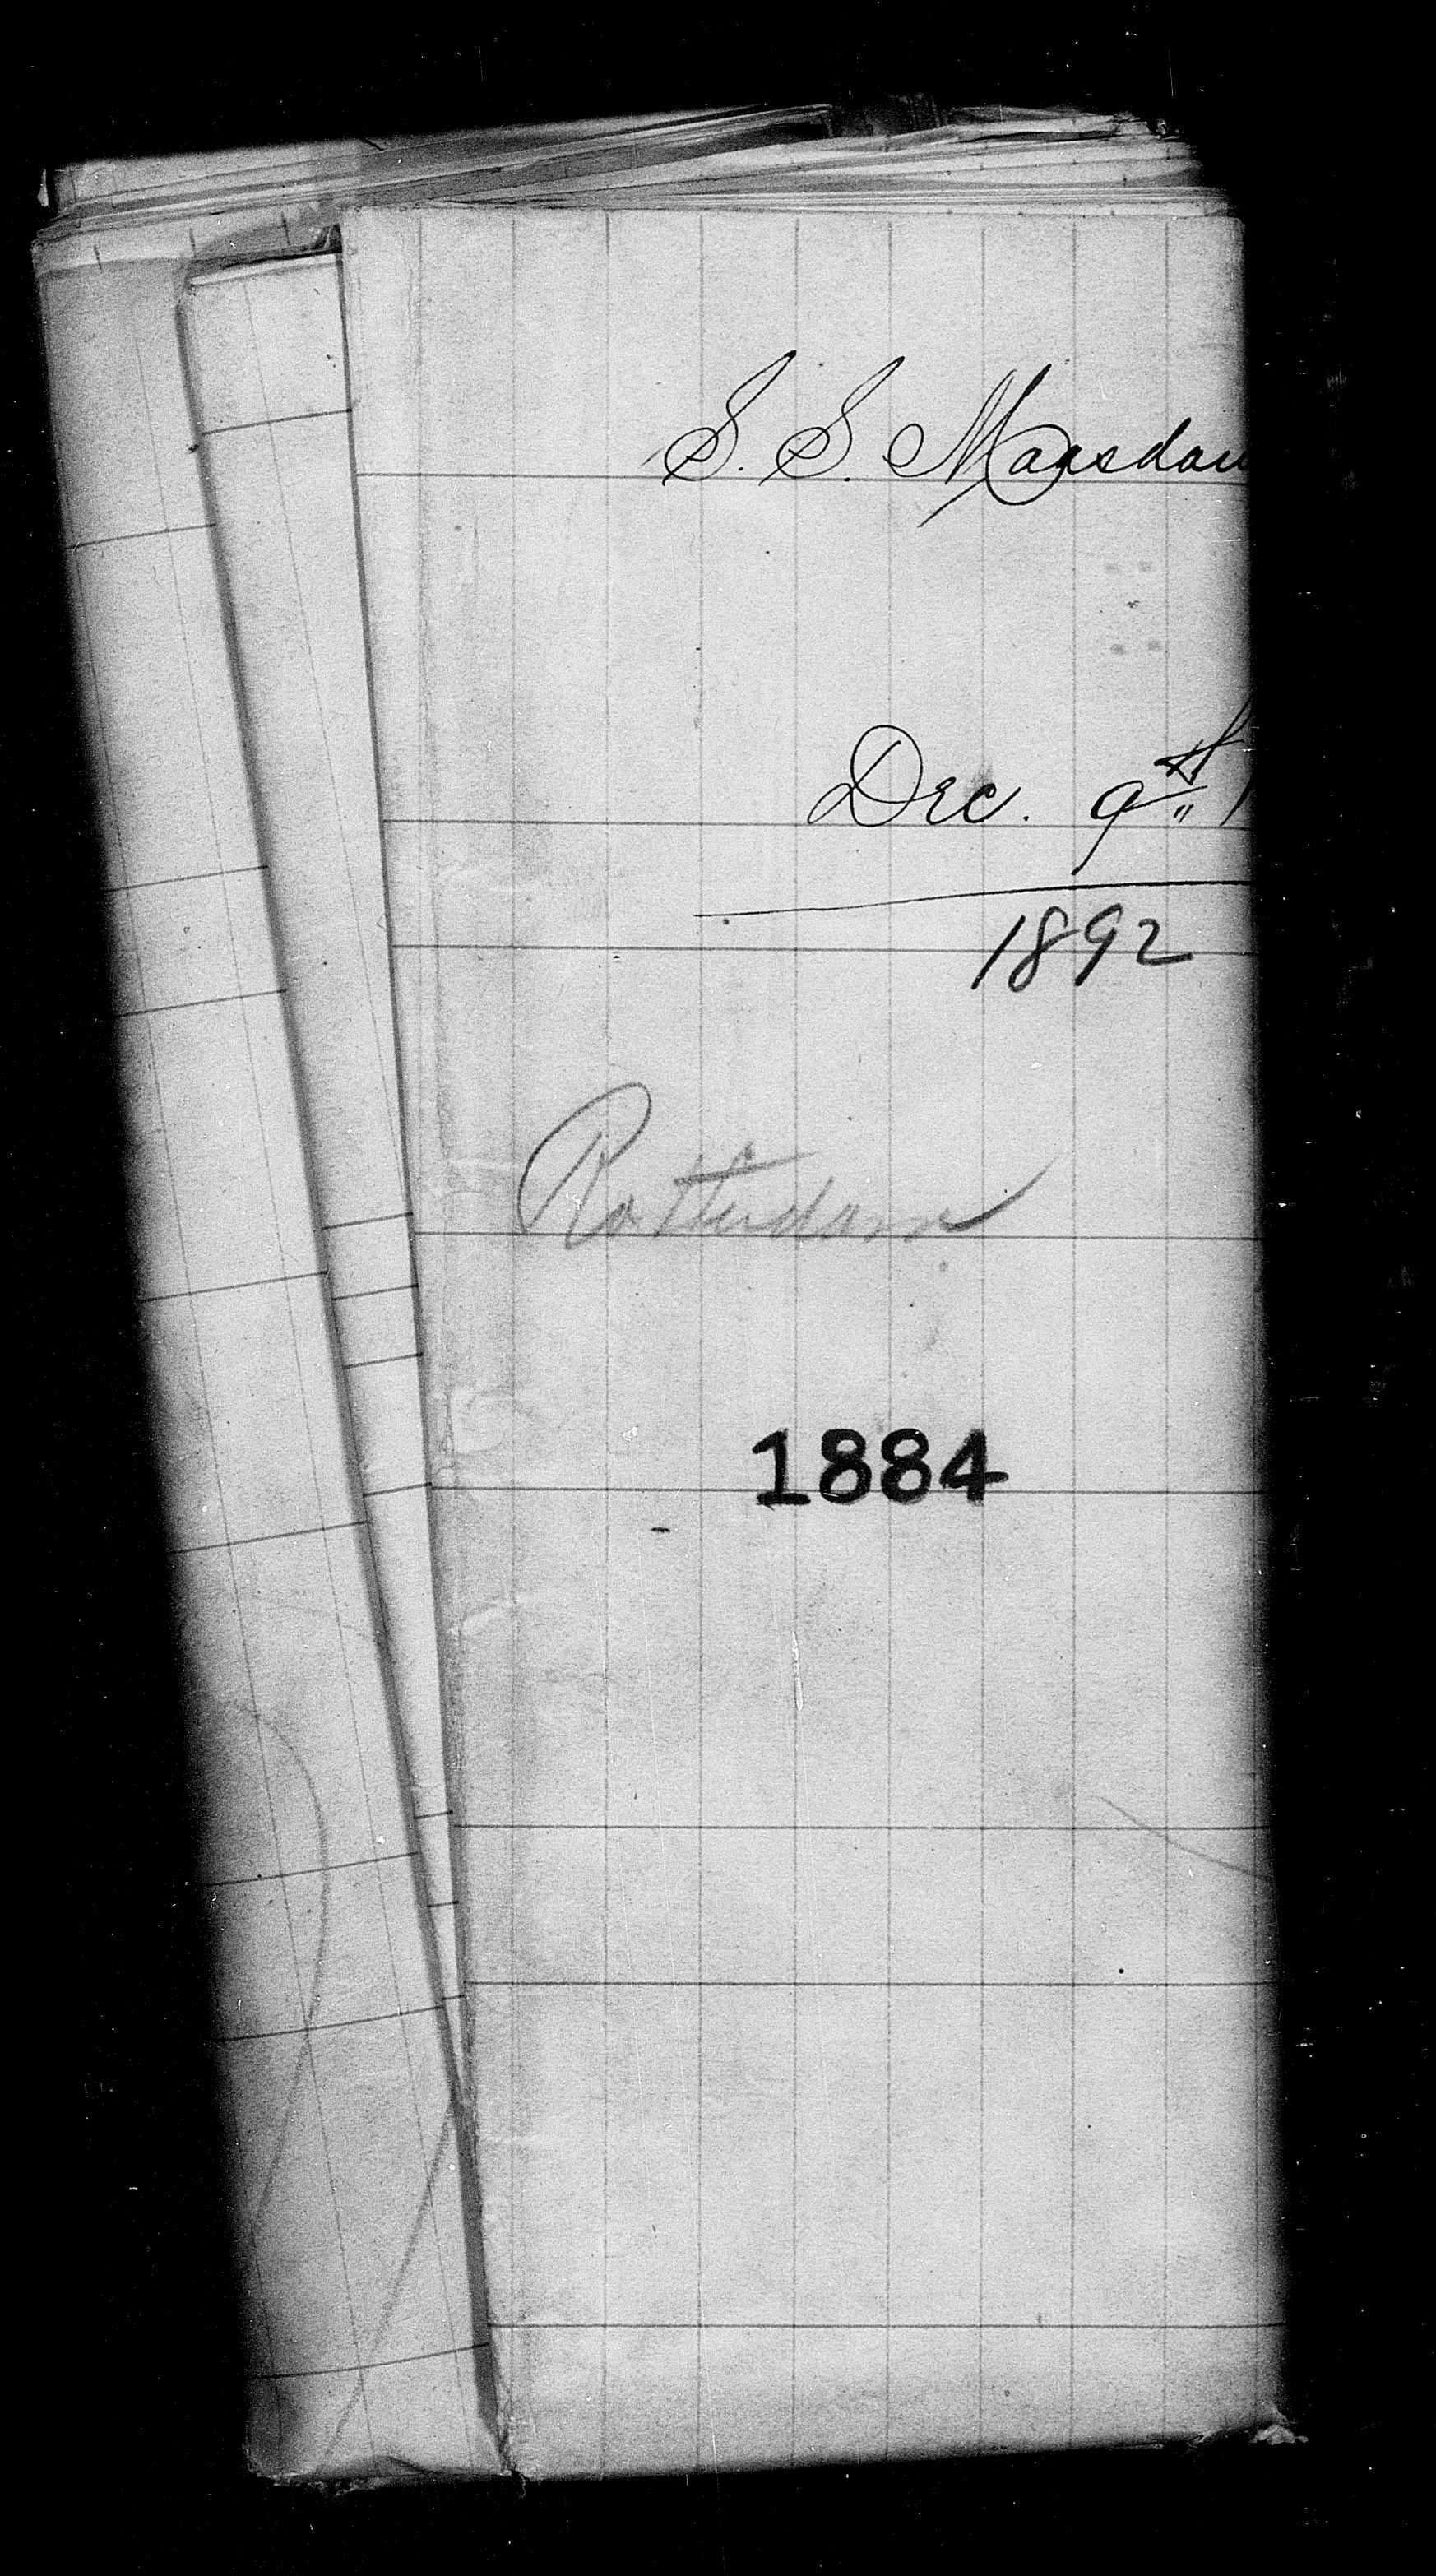 S. S. Maasdam
Dec. 9th
1892
Rotterdam
1884